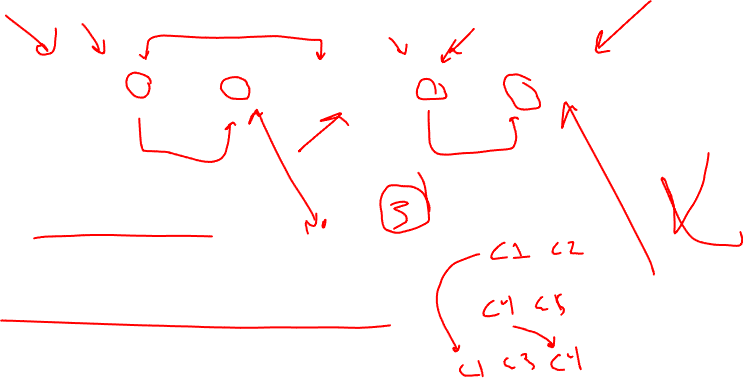 No
3
C1 C2
C4 C5
C1 C3 C4